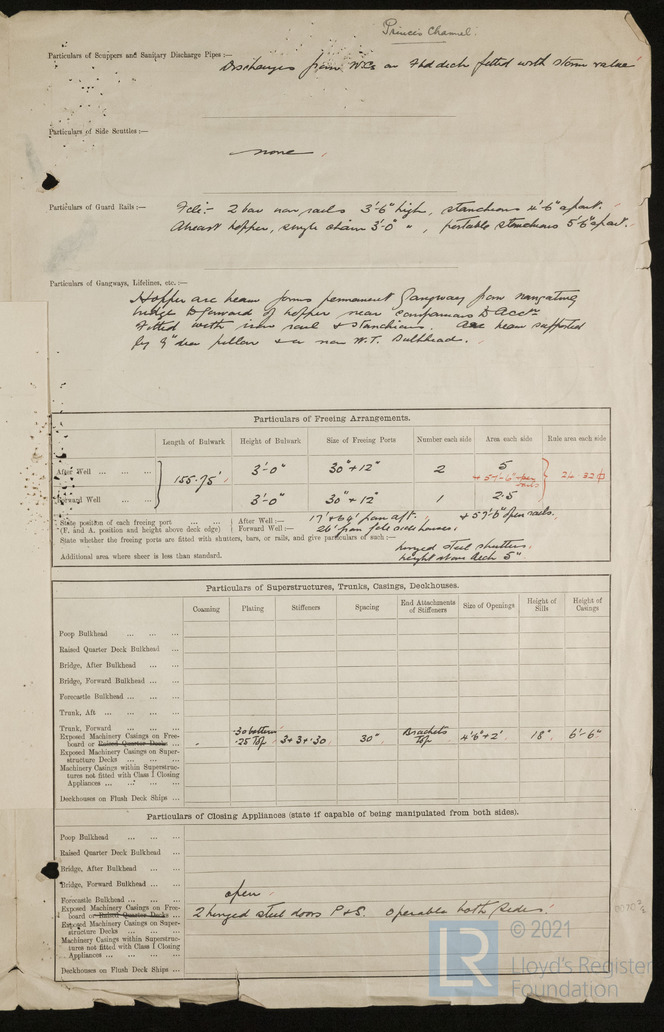 Princes Channel.
Particulars of Scuppers and Sanitary Discharge Pipes :—
Discharges from W.Cs on Fhd deck fitted with storm valve
Particulars of Side Scuttles :—
none.
Particulars of Guard Rails :—
Fcle:- 2 bar iron rails 3'-6" high, stanchions 4'-6" apart.
Abreast hopper, single chain 3'-0" " , portable stanchions 5'-6" apart.
Particulars of Gangways, Lifelines, etc. :—
Hopper arc beam forms permanent Gangway from navigating
bridge to forward of hopper near Companions to Accn
Fitted with iron rail & stanchions. Arc beam supported
by dia pillar & a non W.T. Bulkhead.
Particulars of Freeing Arrangements.
Length of Bulwark Height of Bulwark Size of Freeing Ports Number each side Area each side Rule area each side
After Well ... ... ... 155.75' 3'-0" 30" + 12" 2 5
+ 57'-6" open rails 24.32
Forward Well ... ... 3'-0" 30" + 12" 1 2.5
State position of each freeing port ... ... ... After Well :— 17' + 64' from aft. + 57'-6" open rails.
(F. and A. position and height above deck edge) Forward Well :— 26' from fcle side houses.
State whether the freeing ports are fitted with shutters, bars, or rails, and give particulars of such :— hinged steel shutters.
Additional area where sheer is less than standard. height above deck 5"
Particulars of Superstructures, Trunks, Casings, Deckhouses.
Coaming Plating Stiffeners Spacing End Attachments of Stiffeners Size of Openings Height of Sills Height of Casings
Poop Bulkhead ... ... ...
Raised Quarter Deck Bulkhead ...
Bridge, After Bulkhead ... ...
Bridge, Forward Bulkhead ... ...
Forecastle Bulkhead ... ... ...
Trunk, Aft ... ... ... ...
Trunk, Forward ... ... ...
Exposed Machinery Casings on Free-
board or Raised Quarter Decks ... .30 bottom .25 Top 3+3+.30 30" Brackets Top 4'-6"+2' 18" 6'-6"
Exposed Machinery Casings on Super-
structure Decks ... ... ...
Machinery Casings within Superstruc-
tures not fitted with Class I Closing
Appliances ... ... ... ...
Deckhouses on Flush Deck Ships ...
Particulars of Closing Appliances (state if capable of being manipulated from both sides).
Poop Bulkhead ... ... ...
Raised Quarter Deck Bulkhead ...
Bridge, After Bulkhead ... ...
Bridge, Forward Bulkhead ... ...
Forecastle Bulkhead ... ... ... open
Exposed Machinery Casings on Free-
board or Raised Quarter Decks ... 2 hinged steel doors P & S. operable both sides.
Exposed Machinery Casings on Super-
structure Decks ... ... ...
Machinery Casings within Superstruc-
tures not fitted with Class I Closing
Appliances ... ... ... ...
Deckhouses on Flush Deck Ships ...
LR
© 2021
Lloyd's Register
Foundation